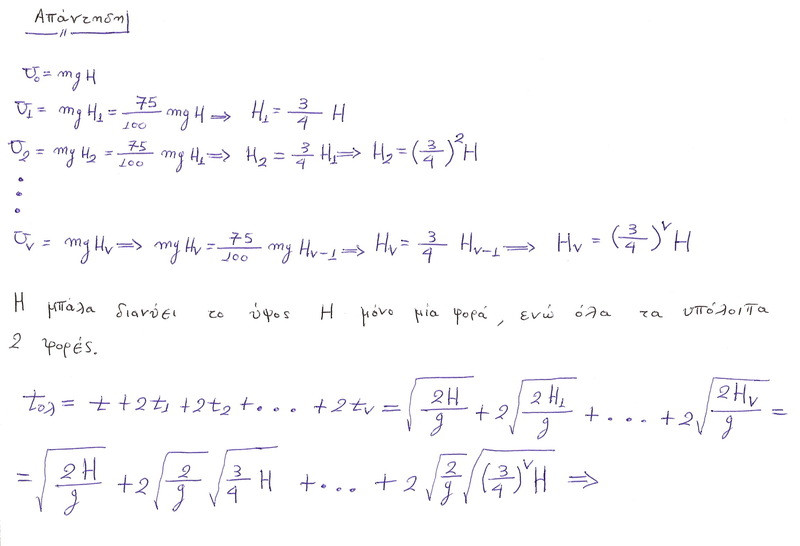 Απάντηση
U₀ = mgH
U₁ = mgH₁ = 75/100 mgH ⟹ H₁ = 3/4 H
U₂ = mgH₂ = 75/100 mgH₁ ⟹ H₂ = 3/4 H₁ ⟹ H₂ = (3/4)²H
⋮
Uᵥ = mgHᵥ ⟹ mgHᵥ = 75/100 mgHᵥ₋₁ ⟹ Hᵥ = 3/4 Hᵥ₋₁ ⟹ Hᵥ = (3/4)^ν H
Η μπάλα διανύει το ύψος Η μόνο μία φορά, ενώ όλα τα υπόλοιπα
2 φορές.
tολ = t + 2t₁ + 2t₂ + ... + 2tᵥ = √(2H/g) + 2√(2H₁/g) + ... + 2√(2Hᵥ/g) =
= √(2H/g) + 2√(2/g) √(3/4 H) + ... + 2√(2/g) √((3/4)^ν H) ⟹